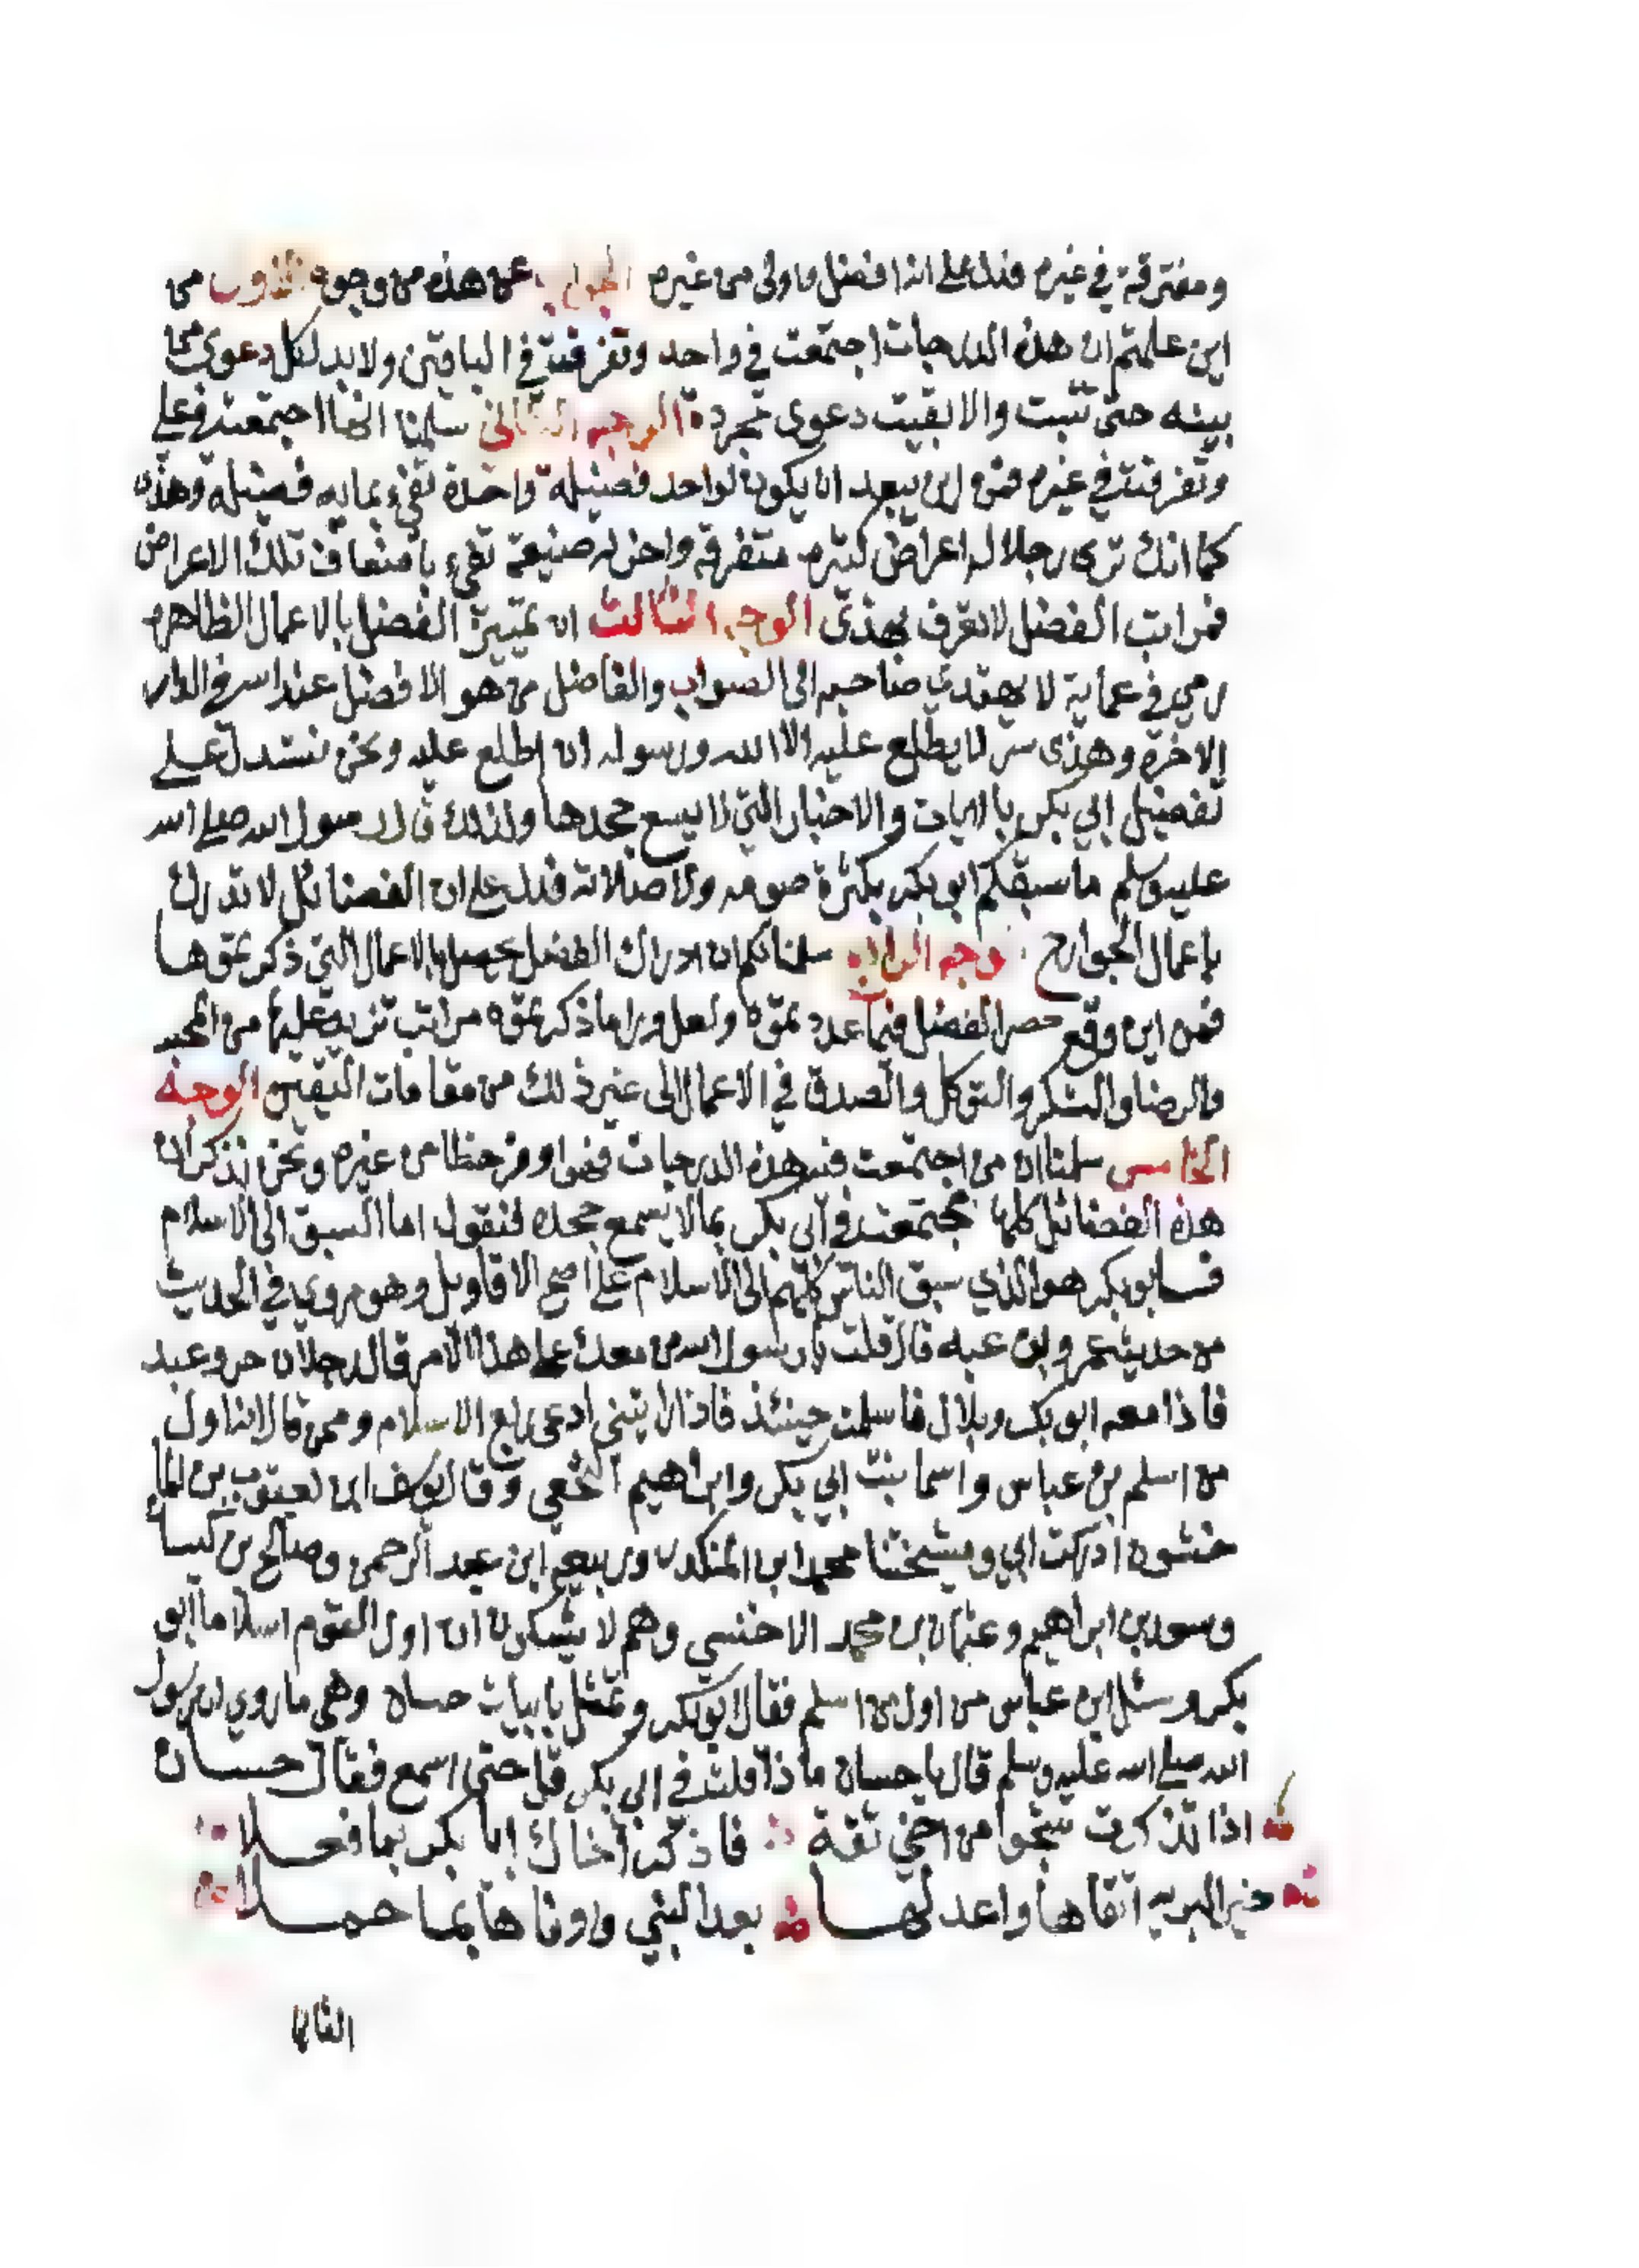 ومفترقة في غيره فدل على انه افضل واولى من غيره الجواب عن هذه من وجوه الاول من
اين علمتم ان هذه الدرجات اجتمعت في واحد وتفرقت في الباقين ولا بد لكل دعوى من
بينه حتى تثبت والا بقيت دعوى مجردة الوجه الثاني سلمنا انها اجتمعت في علي
وتفرقت في غيره فمن اين يبعد ان يكون لواحد فضيلة واحدة تفي بمايه فضيلة وهذه
كما انك ترى رجلا له اعراض كثيره متفرقه واخر له ضيعة تفي باضعاف تلك الاعراض
فمراتب الفضل لا تعرف بهذى الوجه الثالث ان تمييز الفضل بالاعمال الظاهره
رمي في عماية لا يهتدي صاحبه الى الصواب والفاضل من هو الافضل عند الله في الدار
الاخرة وهذى سر لا يطلع عليه الا الله ورسوله ان اطلع عليه ونحن نستدل على
تفضيل ابي بكر بالايات والاخبار التي لا يسع جحدها ولذلك قال رسول الله صلى الله
عليه وسلم ما سبقكم ابو بكر بكثرة صومه ولا صلاته فدل على ان الفضائل لا تدرك
باعمال الجوارح الوجه الرابع سلمنا لكم ان ادراك الفضل يحصل بالاعمال التي ذكرتموها
فمن اين وقع حصر الفضل فيما عددتموه ولعل ورا ما ذكرتموه مراتب تزيد عليها من المحبه
والرضا والشكر والتوكل والصدق في الاعمال الى غير ذلك من مقامات اليقين الوجه
الخامس سلمنا ان من اجتمعت فيه هذه الدرجات فهو اوفر حظا من غيره ونحن نذكر ان
هذه الفضائل كلها مجتمعة في ابي بكر بما لا يسمع جحده فنقول اما السبق الى الاسلام
فابو بكر هو الذي سبق الناس كلهم الى الاسلام على اصح الاقاويل وهو مروي في الحديث
من حديث عمرو بن عبسه قال قلت يا رسول الله من معك على هذا الامر قال رجلان حر وعبد
فاذا معه ابو بكر وبلال فاسلمت حينئذ فاذا لايتني ادعى رابع الاسلام وممن قال انه اول
من اسلم بن عباس واسما بنت ابي بكر وابراهيم النخعي وقال يوسف ابن يعقوب بن الما
خشون ادركت ابي ومشيختنا محمد ابن المنكدر وربيعه ابن عبد الرحمن وصالح بن كيسان
وسعد بن ابراهيم وعثمان بن محمد الاخنسي وهم لا يشكون ان اول القوم اسلاما ابو
بكر وسئل ابن عباس من اول من اسلم فقال ابو بكر وتمثل بابيات حسان وهي ما روي ان رسول
الله صلى الله عليه وسلم قال يا حسان ماذا قلت في ابي بكر قل حتى اسمع فقال حسان
اذا تذكرت شجوا من اخي ثقة فاذكر اخاك ابا بكر بما فعلا
خير البريه اتقاها واعدلها بعد النبي واوفاها بما حملا
الثاني